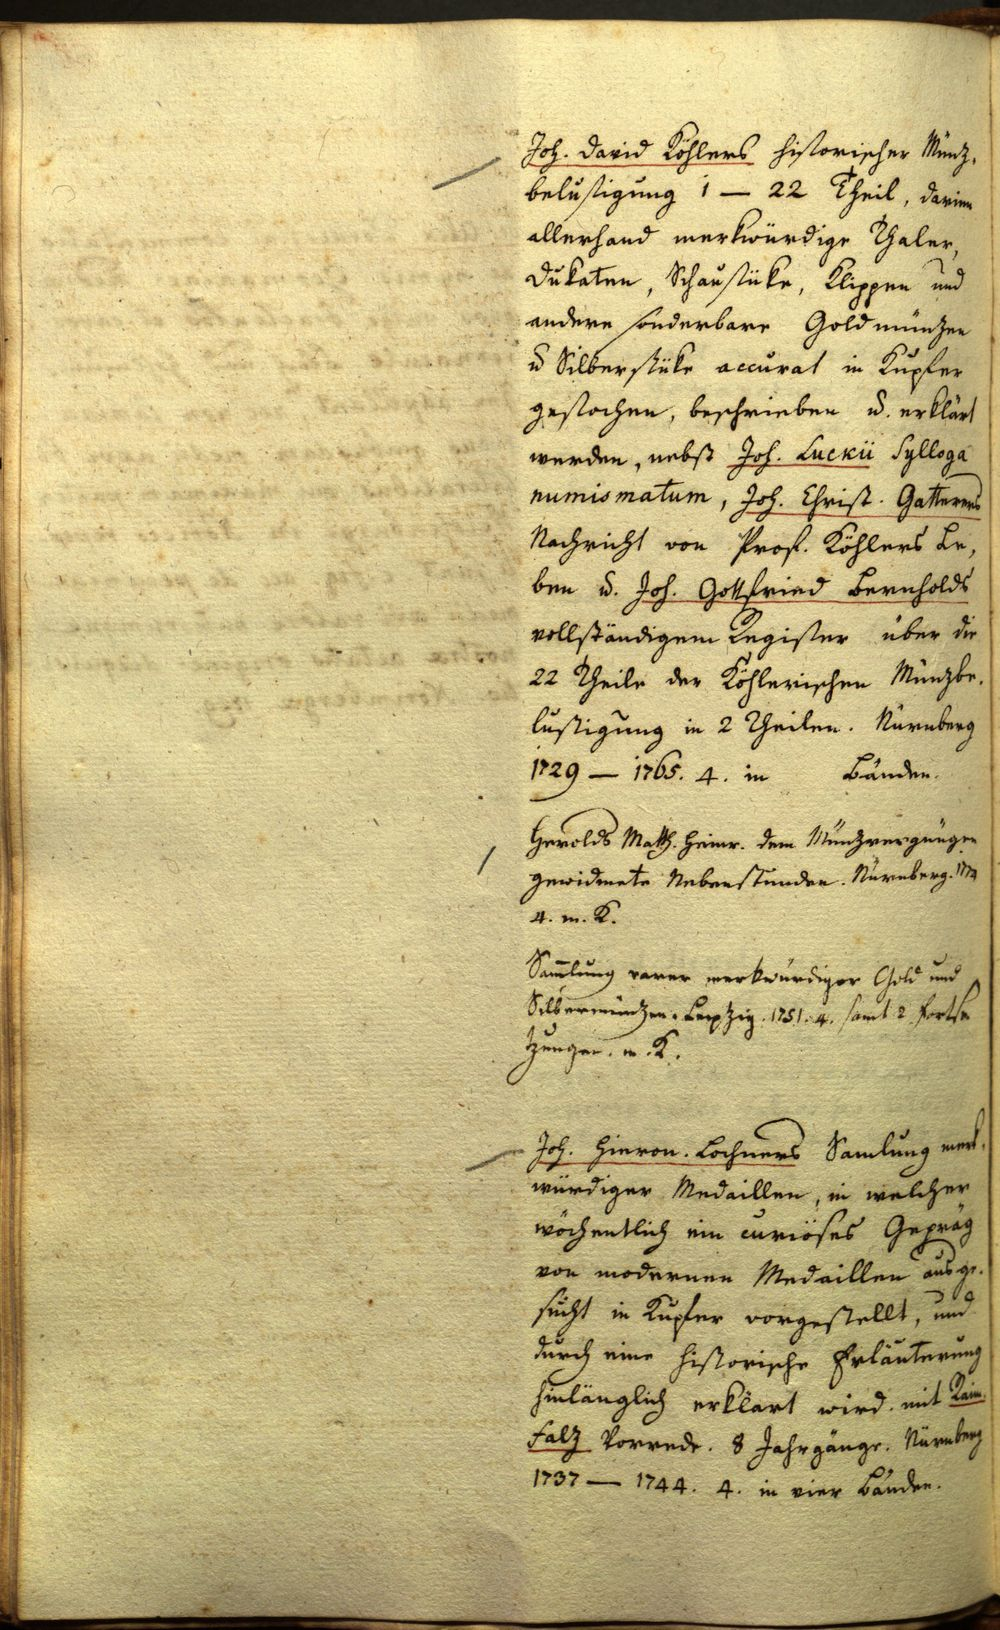 Joh. David Köhlers historischer Münz-
belustigung 1 — 22 Theil, darinn
allerhand merkwürdige Thaler,
Dukaten, Schaustüke, Klippen und
andere sonderbare Goldmünzen
u Silberstüke accurat in Kupfer
gestochen, beschrieben u. erklärt
werden, nebst Joh. Luckii Sylloga
numismatum, Joh. Christ. Gatterers
Nachricht von Prof. Köhlers Le-
ben u. Joh. Gottfried Bernholds
vollständigem Register über die
22 Theile der Köhlerischen Münzbe-
lustigung in 2 Theilen. Nürnberg
1729 — 1765. 4. in Bänden.
Herolds Matth. Heinr. dem Münzvergnügen
gewidmete Nebenstunden. Nürnberg. 1774
4. m. K.
Sammlung rarer merkwürdiger Gold und
Silbermünzen. Leipzig. 1751. 4. samt 2 Fortse
tzungen. m. K.
Joh. Hieron. Lochners Samlung merk-
würdiger Medaillen, in welcher
wöchentlich ein curiöses Gepräg
von modernen Medaillen ausge-
sucht in Kupfer vorgestellt, und
durch eine historische Erläuterung
hinlänglich erklärt wird. mit Raim.
Falz Vorrede. 8 Jahrgänge. Nürnberg
1737 — 1744. 4. in vier Bänden.